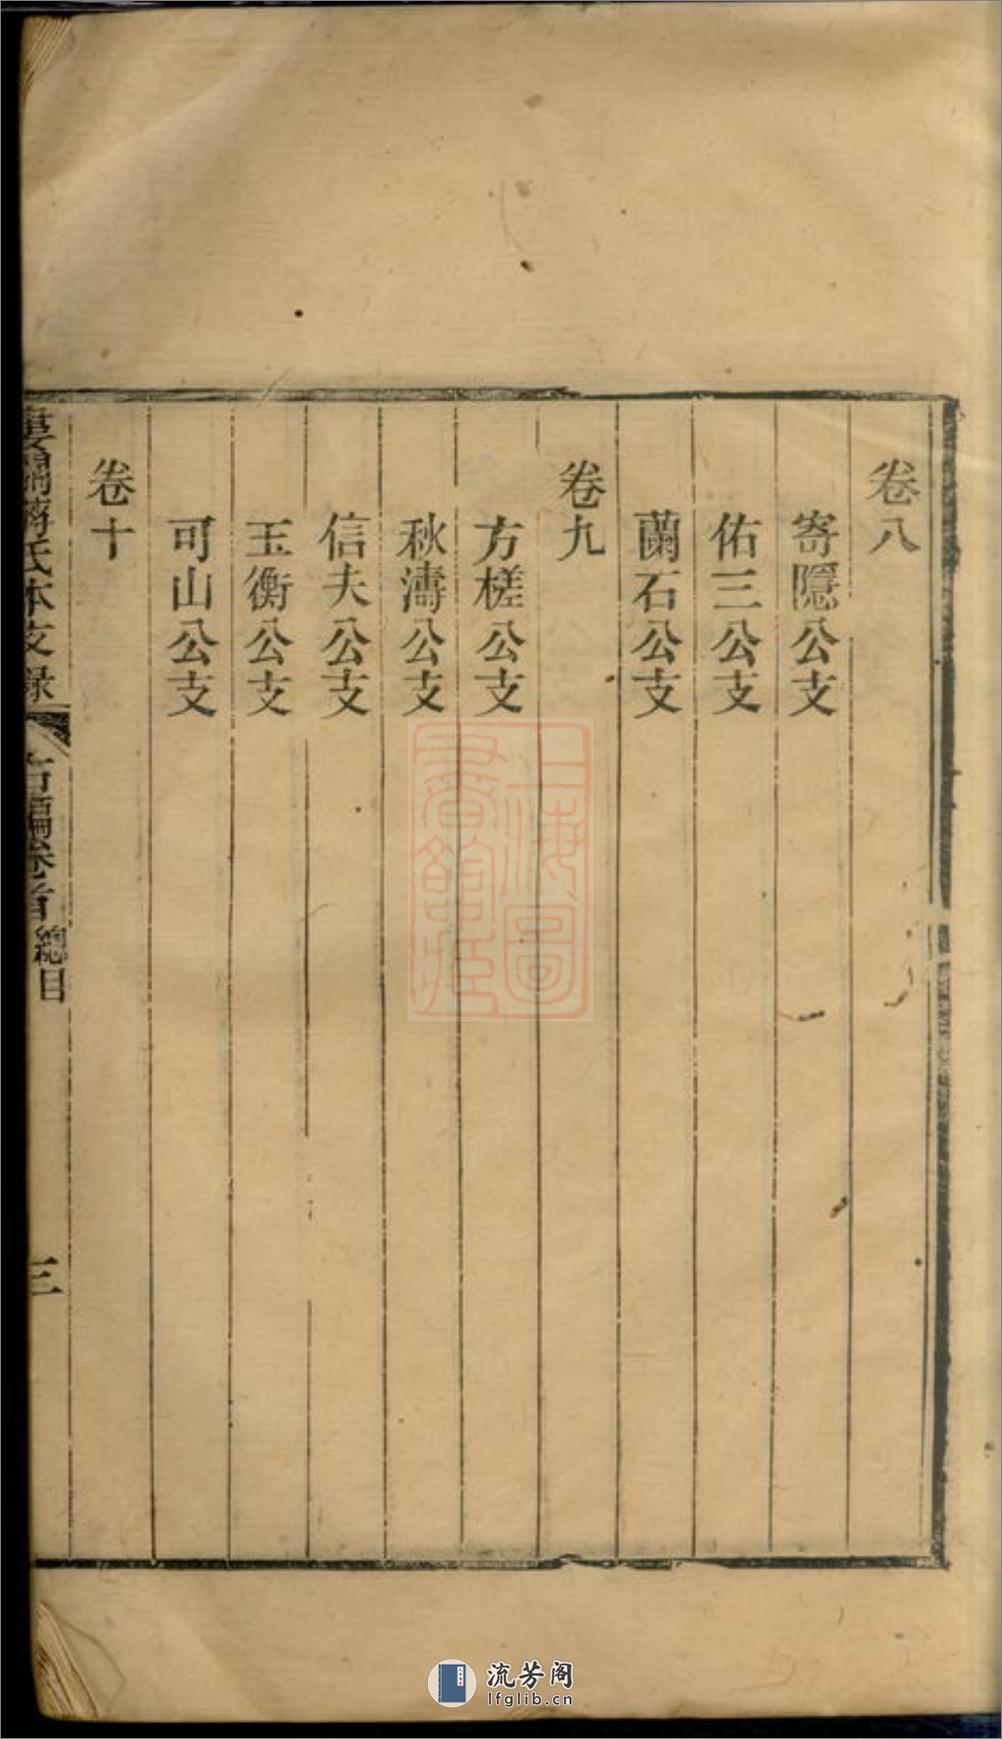 卷八
寄隱公支
佑三公支
蘭石公支
卷九
方槎公支
秋濤公支
信夫公支
玉衡公支
可山公支
卷十
婁關蔣氏本支錄
右編卷首 總目
三
上海圖書館藏
流芳阁
lfglib.cn